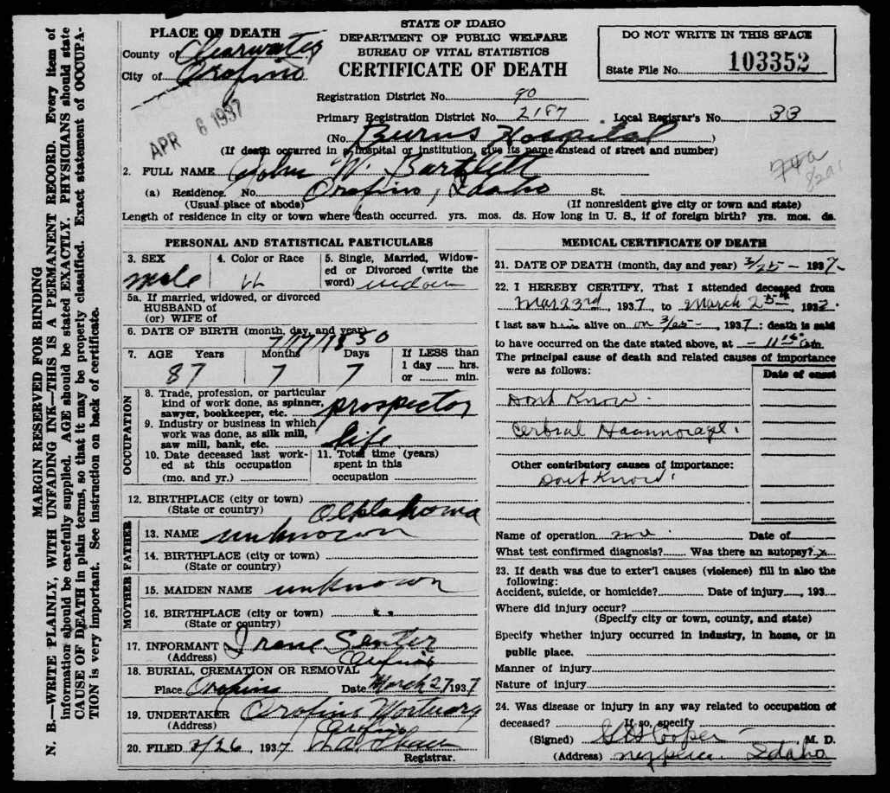 MARGIN RESERVED FOR BINDING
N. B.—WRITE PLAINLY, WITH UNFADING INK—THIS IS A PERMANENT RECORD. Every item of
information should be carefully supplied. AGE should be stated EXACTLY. PHYSICIANS should state
CAUSE OF DEATH in plain terms, so that it may be properly classified. Exact statement of OCCUPA-
TION is very important. See instruction on back of certificate.
PLACE OF DEATH
County of Clearwater
City of Orofino
APR 6 1937
STATE OF IDAHO
DEPARTMENT OF PUBLIC WELFARE
BUREAU OF VITAL STATISTICS
CERTIFICATE OF DEATH
DO NOT WRITE IN THIS SPACE
State File No. 103352
Registration District No. 90
Primary Registration District No. 2187 Local Registrar's No. 33
(No. Burns Hospital )
(If death occurred in a hospital or institution, give its name instead of street and number)
2. FULL NAME John W. Bartlett
(a) Residence. No. Orofino, Idaho St.
(Usual place of abode) (If nonresident give city or town and state)
Length of residence in city or town where death occurred. yrs. mos. ds. How long in U. S., if of foreign birth? yrs. mos. ds.
PERSONAL AND STATISTICAL PARTICULARS
3. SEX 4. Color or Race 5. Single, Married, Widow-
ed or Divorced (write the
word)
male
5a. If married, widowed, or divorced
HUSBAND of
(or) WIFE of
6. DATE OF BIRTH (month, day, and year) 7/17/1850
7. AGE Years Months Days If LESS than
1 day hrs.
or min.
87 7 7
OCCUPATION
8. Trade, profession, or particular
kind of work done, as spinner,
sawyer, bookkeeper, etc. prospector
9. Industry or business in which
work was done, as silk mill,
saw mill, bank, etc. life
10. Date deceased last work-
ed at this occupation
(mo. and yr.)
11. Total time (years)
spent in this
occupation
12. BIRTHPLACE (city or town)
(State or country) Oklahoma
FATHER
13. NAME unknown
14. BIRTHPLACE (city or town)
(State or country)
MOTHER
15. MAIDEN NAME unknown
16. BIRTHPLACE (city or town)
(State or country)
17. INFORMANT Irene Senter
(Address) Orofino
18. BURIAL, CREMATION OR REMOVAL
Place Orofino Date March 27 1937
19. UNDERTAKER Orofino Mortuary
(Address) Orofino
20. FILED 3/26, 1937
Registrar.
MEDICAL CERTIFICATE OF DEATH
21. DATE OF DEATH (month, day and year) 3/25- 1937-
22. I HEREBY CERTIFY, That I attended deceased from
Mar 23rd, 1937, to March 25th, 1937.
I last saw him alive on on 3/25-, 1937: death is said
to have occurred on the date stated above, at - 11
The principal cause of death and related causes of importance
were as follows: Date of onset
Dont Know.
Cerbral Haemmorage.
Other contributory causes of importance:
Dont Know.
Name of operation Date of
What test confirmed diagnosis? Was there an autopsy?
23. If death was due to exter'l causes (violence) fill in also the
following:
Accident, suicide, or homicide? Date of injury, 193
Where did injury occur?
(Specify city or town, county, and state)
Specify whether injury occurred in industry, in home, or in
public place.
Manner of injury
Nature of injury
24. Was disease or injury in any way related to occupation of
deceased? If so, specify
(Signed) Cooper M. D.
(Address) nezperce Idaho